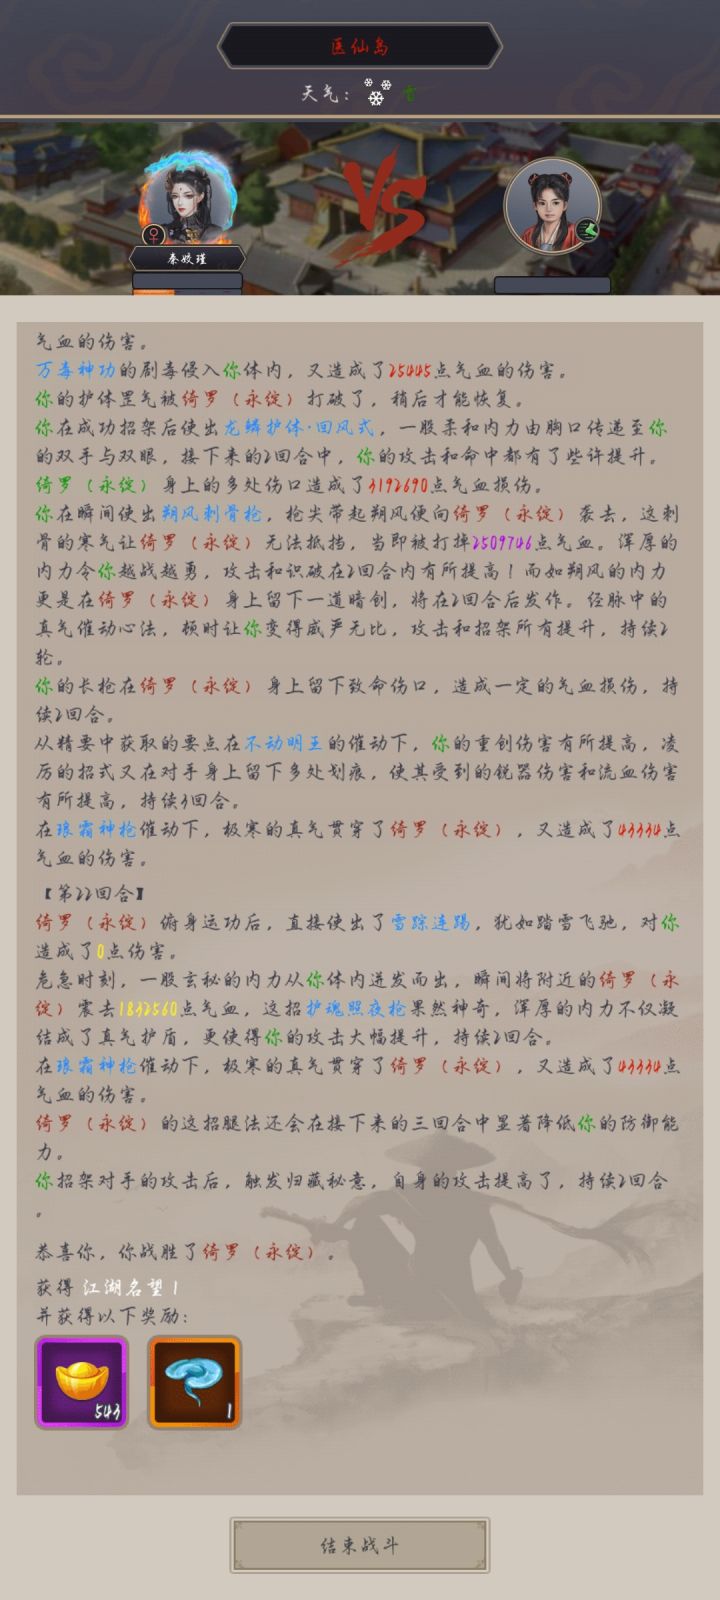 医仙岛
天气：
雪
VS
秦姣瑾
气血的伤害。
万毒神功的剧毒侵入你体内，又造成了25445点气血的伤害。
你的护体罡气被绮罗（永绽）打破了，稍后才能恢复。
你在成功招架后使出龙鳞护体·回风式，一股柔和内力由胸口传递至你
的双手与双眼，接下来的2回合中，你的攻击和命中都有了些许提升。
绮罗（永绽）身上的多处伤口造成了3192690点气血损伤。
你在瞬间使出朔风刺骨枪，枪尖带起朔风便向绮罗（永绽）袭去，这刺
骨的寒气让绮罗（永绽）无法抵挡，当即被打掉2509746点气血。浑厚的
内力令你越战越勇，攻击和识破在2回合内有所提高！而如朔风的内力
更是在绮罗（永绽）身上留下一道暗创，将在2回合后发作。经脉中的
真气催动心法，顿时让你变得威严无比，攻击和招架所有提升，持续2
轮。
你的长枪在绮罗（永绽）身上留下致命伤口，造成一定的气血损伤，持
续2回合。
从精要中获取的要点在不动明王的催动下，你的重创伤害有所提高，凌
厉的招式又在对手身上留下多处划痕，使其受到的锐器伤害和流血伤害
有所提高，持续3回合。
在琅霜神枪催动下，极寒的真气贯穿了绮罗（永绽），又造成了43334点
气血的伤害。
【第22回合】
绮罗（永绽）俯身运功后，直接使出了雪踪连踢，犹如踏雪飞驰，对你
造成了0点伤害。
危急时刻，一股玄秘的内力从你体内迸发而出，瞬间将附近的绮罗（永
绽）震去1832560点气血，这招护魂照夜枪果然神奇，浑厚的内力不仅凝
结成了真气护盾，更使得你的攻击大幅提升，持续2回合。
在琅霜神枪催动下，极寒的真气贯穿了绮罗（永绽），又造成了43334点
气血的伤害。
绮罗（永绽）的这招腿法还会在接下来的三回合中显著降低你的防御能
力。
你招架对手的攻击后，触发归藏秘意，自身的攻击提高了，持续2回合
。
恭喜你，你战胜了绮罗（永绽）。
获得 江湖名望 1
并获得以下奖励：
543
1
结束战斗